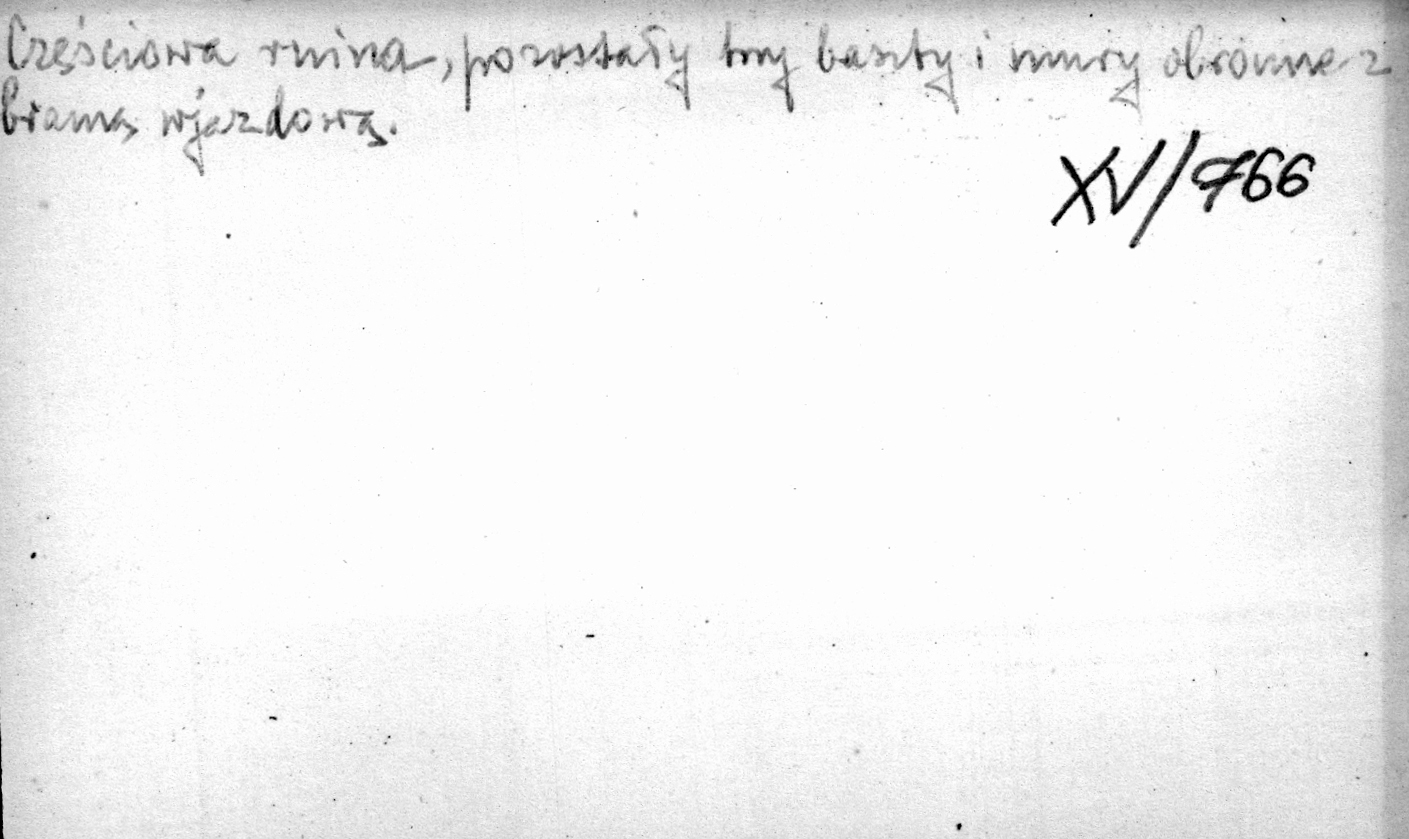 Częściowa ruina, pozostały trzy baszty i mury obronne z
bramą wjazdową.
XV/766